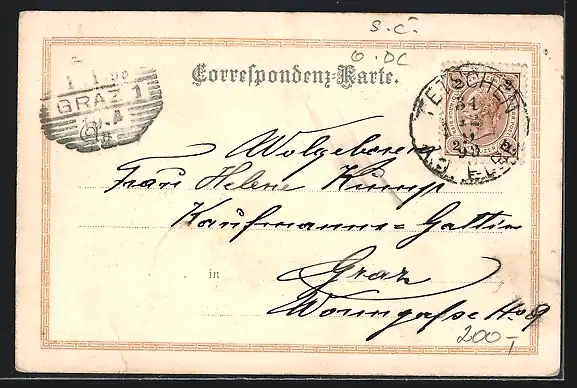 S.C.
O.DC
Correspondenz-Karte.
GRAZ 1
TETSCHEN
Wolgeboren
Frau Helene Kump
Kaufmanns-Gattin
in Graz
No 9
200,-